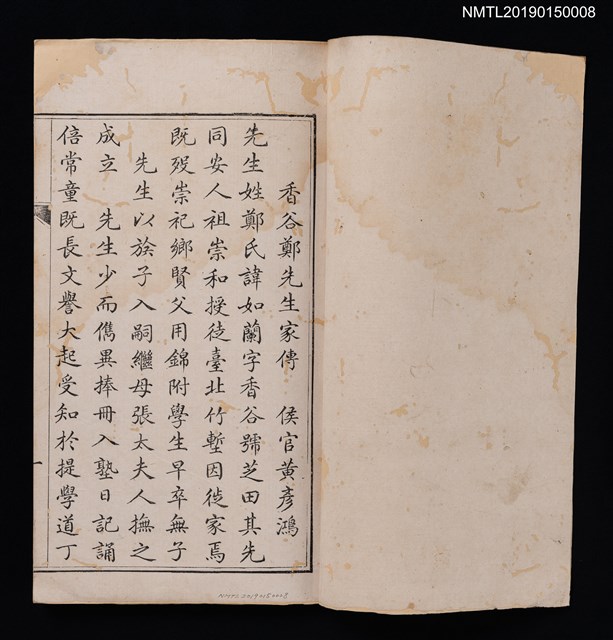 NMTL20190150008
香谷鄭先生家傳　侯官黃彥鴻
先生姓鄭氏諱如蘭字香谷號芝田其先
同安人祖崇和授徒臺北竹塹因徙家焉
既歿崇祀鄉賢父用錦附學生早卒無子
先生以族子入嗣繼母張太夫人撫之
成立　先生少而儁異捧冊入塾日記誦
倍常童既長文譽大起受知於提學道丁
一
NMTL20190150008